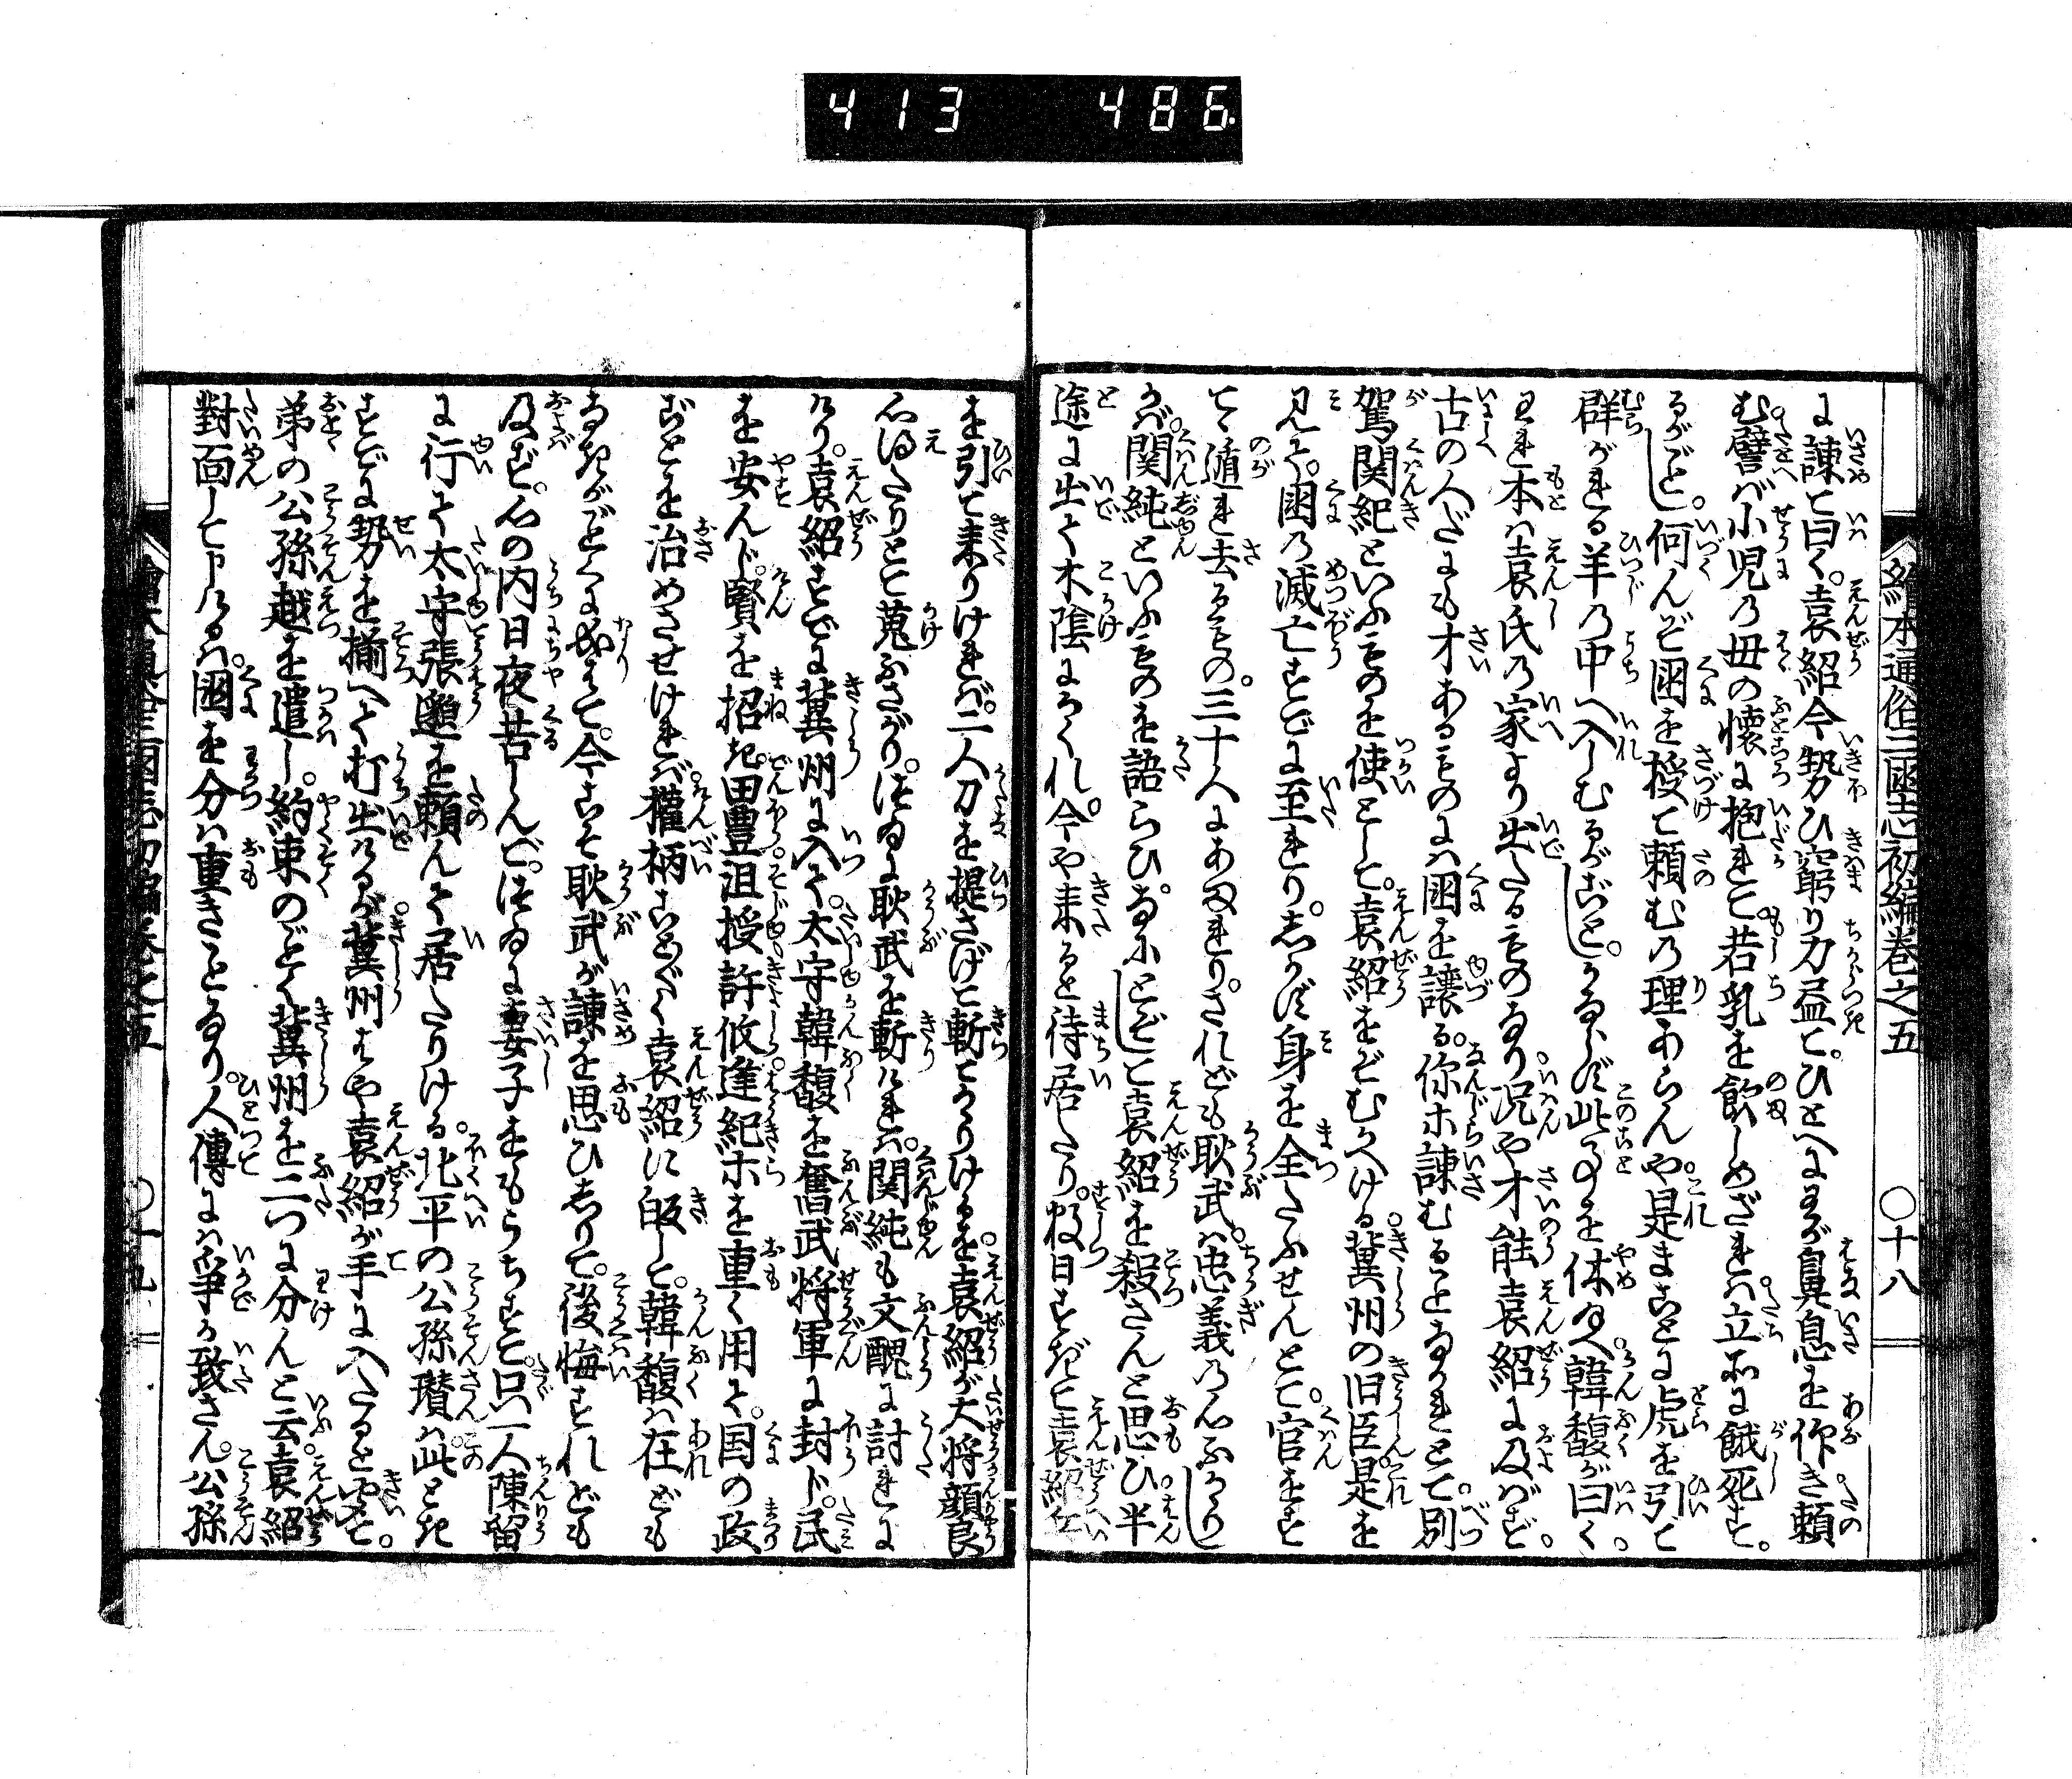 413 486
繪本通俗三國志初編巻之五 〇十八
に諫て曰く。袁紹今勢ひ窮り力盡て。ひとへにわが鼻息を仰き頼
む。譬ば小児の毋の懐に抱れて。若乳を飲しめざれば立所に餓死す。
るがごとし。何んぞ國を授て頼むの理あらんや。是まことに虎を引て
群がれる羊の中へ入しむるがごとし。かならず此事を休め給へ。韓馥が曰く。
われ本は袁氏の家より出たるものなり。况や才能袁紹に及ばず。
古の人だにも才あるものには國を譲る。你ホ諫むることなかれとて。別
駕関紀といふものを使として。袁紹をぞむかへける。冀州の旧臣是を
見て。國の滅亡すでに至れり。しかず身を全ふせんとて。官をす
てゝ遁れ去るもの。三十人にあまれり。されども耿武は。忠義の心ふかかりし
かば。関純といふものを語らひ。なにとぞして袁紹を殺さんと思ひ。半
途に出て木陰にかくれ。今や来ると待居たり。数日すぎて袁紹兵
を引て来りければ。二人刀を提さげて斬てかかりけるを。袁紹が大将顔良
心得たりとて蒐ふさがり。つゐに耿武を斬ければ。関純も文醜に討れに
けり。袁紹すでに冀州に入て。太守韓馥を奮武将軍に封じ。民
を安んじ。賢を招き。田豊沮授許攸逢紀ホを重く用て。国の政
ごとを治めさせければ。權柄ことごとく袁紹に皈して。韓馥は在ども
なきがごとくに成はて。今こそ耿武が諫を思ひしりて。後悔すれども
及ばず。心の内日夜苦しんで。つゐに妻子をもうちすて。只一人陳留
に行て太守張邈を頼んで居たりける。北平の公孫瓚は。此とき
すでに勢を揃へて打出けるが。冀州はや袁紹が手に入たると聞て。
弟の公孫越を遣し。約束のごとく冀州を二つに分んと云。袁紹
對面して申けるは。國を分は重きことなり。人傳には争か致さん。公孫